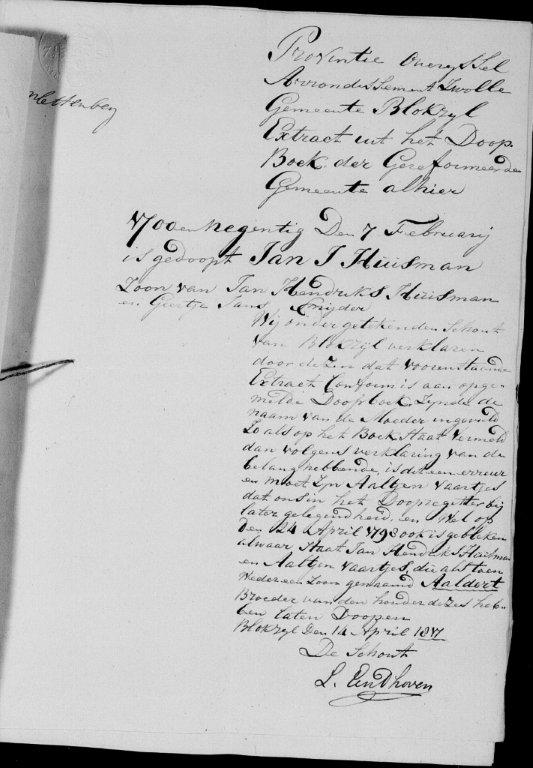 Provintie Overyssel
Arrondissement Zwolle
Gemeente Blokzyl
Extract uit het Doop
Boek der Gereformeerde
Gemeente alhier
1700 en Negentig Den 7 Februarij
is gedoopt Jan J Huisman
Zoon van Jan Hendriks Huisman
en Geertje Jans Snijder
Wij ondergetekenden Schout
van Blokzyl verklaren
door dezen dat voorenstaande
Extract Conform is aan opge-
melde Doopboek Zynde de
naam van de Moeder ingevuld
zo als op het Boek Staat vermeld
dan volgens verklaring van de
belanghebbende, is dit een erreur
en moet zyn Aaltjen Vaartjes
dat ons in het Doopregister bij
later gelegendheid, en Wel op
Den 24 April 1793 ook is gebleken
alwaar Staat Jan Hendriks Huisman
en Aaltjen Vaartjes, die als toen
Weder een Zoon genaamd Aaldert
Broeder van den houder dezes heb-
ben laten Doopen
Blokzyl Den 14 April 1817
De Schout
L. Eindhoven